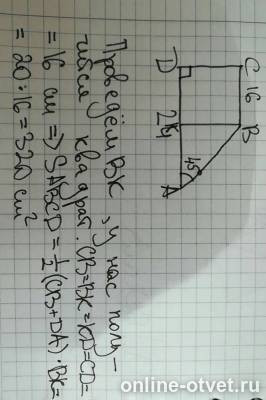 D
C
16
24
K
B
45°
A
Проведём BK, у нас полу-
чился квадрат. CB=BK=KD=CD=
= 16 см => SABCD = ½(CB+DA)·BK=
= 20:16 = 320 см²
online-otvet.ru